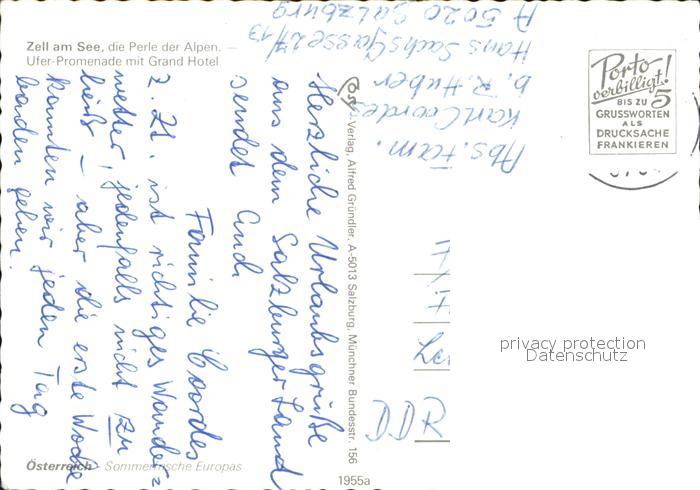 Zell am See, die Perle der Alpen. —
Ufer-Promenade mit Grand Hotel
Herzliche Urlaubsgrüße
aus dem Salzburger Land
sendet Euch
Familie Coordes
z. Zt. ist richtiges Wander=
wetter, jedenfalls nicht zu
heiß - aber die erste Woche
konnten wir jeden Tag
baden gehen.
Österreich - Sommerfrische Europas
-Verlag, Alfred Gründler, A-5013 Salzburg, Münchner Bundesstr. 156
1955a
Abs. Fam.
Karl Coordes
b. R. Huber
Hans Sachs Gasse 27/13
A 5020 Salzburg
Porto
verbilligt!
BIS ZU 5
GRUSSWORTEN
ALS
DRUCKSACHE
FRANKIEREN
DDR
privacy protection
Datenschutz